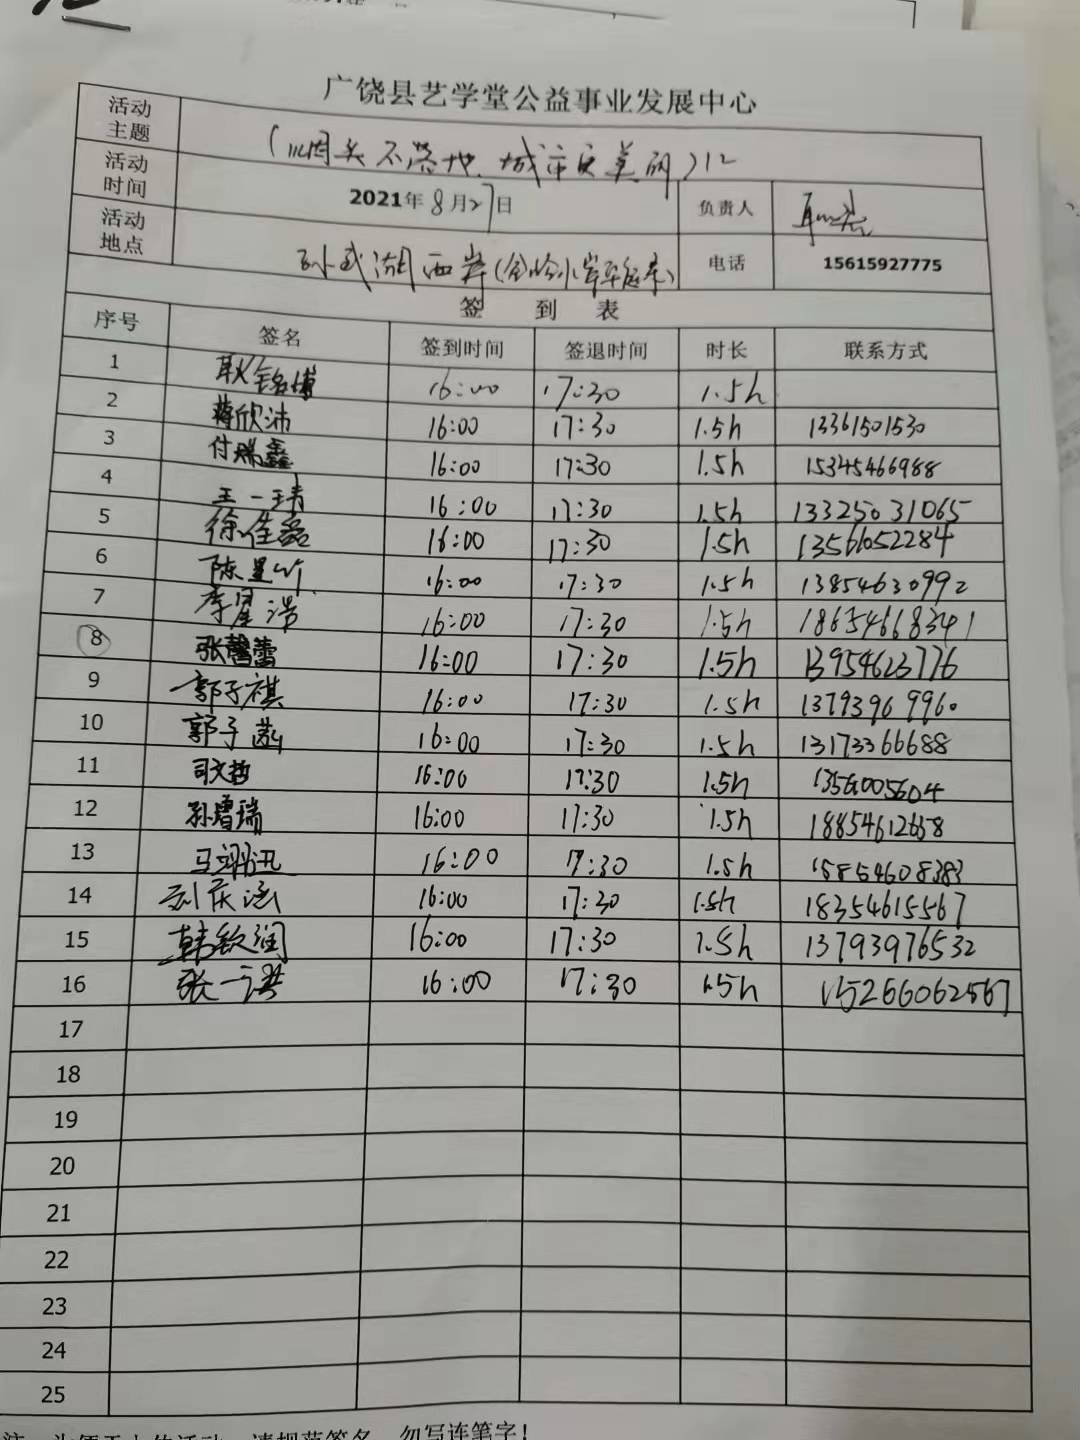 广饶县艺学堂公益事业发展中心
活动主题 (烟头不落地.城市更美丽)12
活动时间 2021年8月27日 负责人
活动地点 孙武湖西岸 电话 15615927775
签 到 表
序号 签名 签到时间 签退时间 时长 联系方式
1 耿铭博 16:00 17:30 1.5h
2 蒋欣沛 16:00 17:30 1.5h 13361501530
3 付瑞鑫 16:00 17:30 1.5h 15345466988
4 王一琋 16:00 17:30 1.5h 13325031065
5 徐佳磊 16:00 17:30 1.5h 13561052284
6 陈昱竹 16:00 17:30 1.5h 13854630992
7 李星浩 16:00 17:30 1.5h 18654668341
8 张馨蕾 16:00 17:30 1.5h 13954623776
9 郭子祺 16:00 17:30 1.5h 13793969960
10 郭子菡 16:00 17:30 1.5h 13173366688
11 司文哲 16:00 17:30 1.5h 13561005604
12 孙曾瑞 16:00 17:30 1.5h 18854612658
13 马翊迅 16:00 17:30 1.5h 15854608383
14 刘庆涵 16:00 17:30 1.5h 18354615567
15 韩钦润 16:00 17:30 1.5h 13793976532
16 张一诺 16:00 17:30 1.5h 15266062567
17
18
19
20
21
22
23
24
25
请规范签名，勿写连笔字！